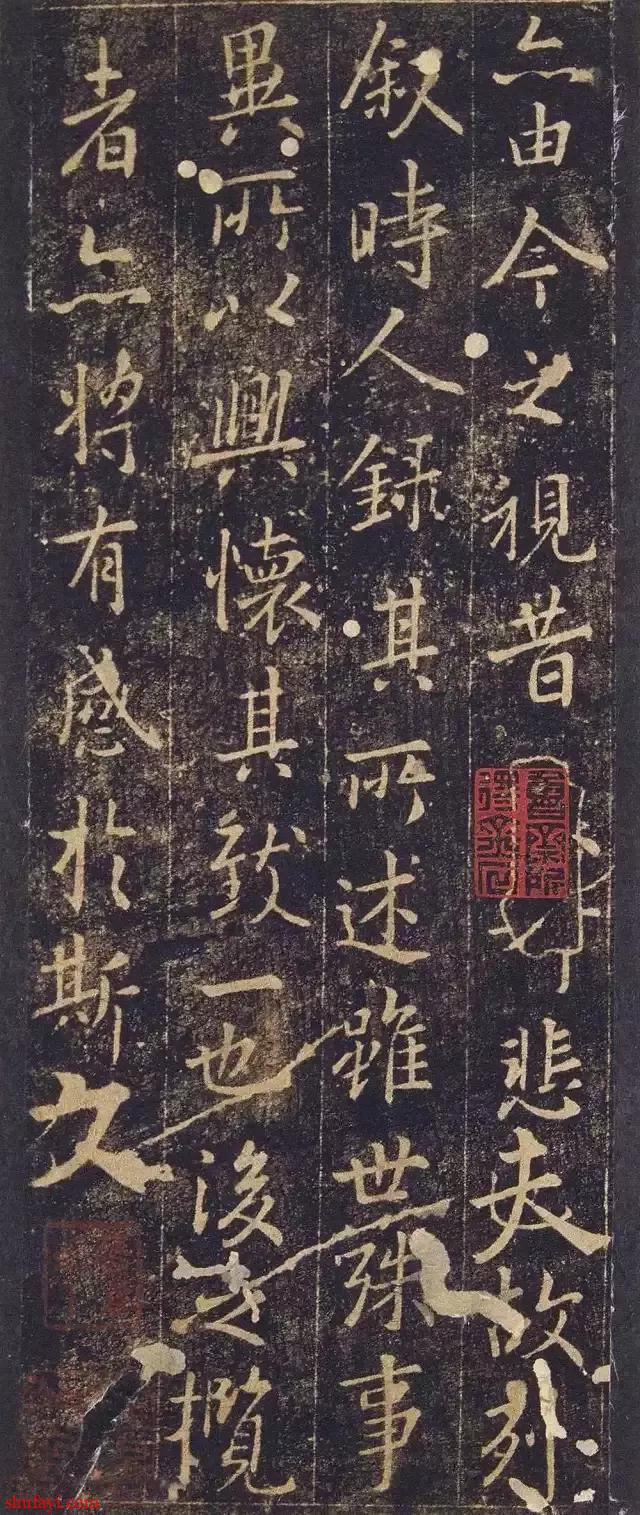 亦由今之視昔悲夫故列
叙時人録其所述雖世殊事
異所以興懷其致一也後之攬
者亦将有感於斯文
shufayi.com